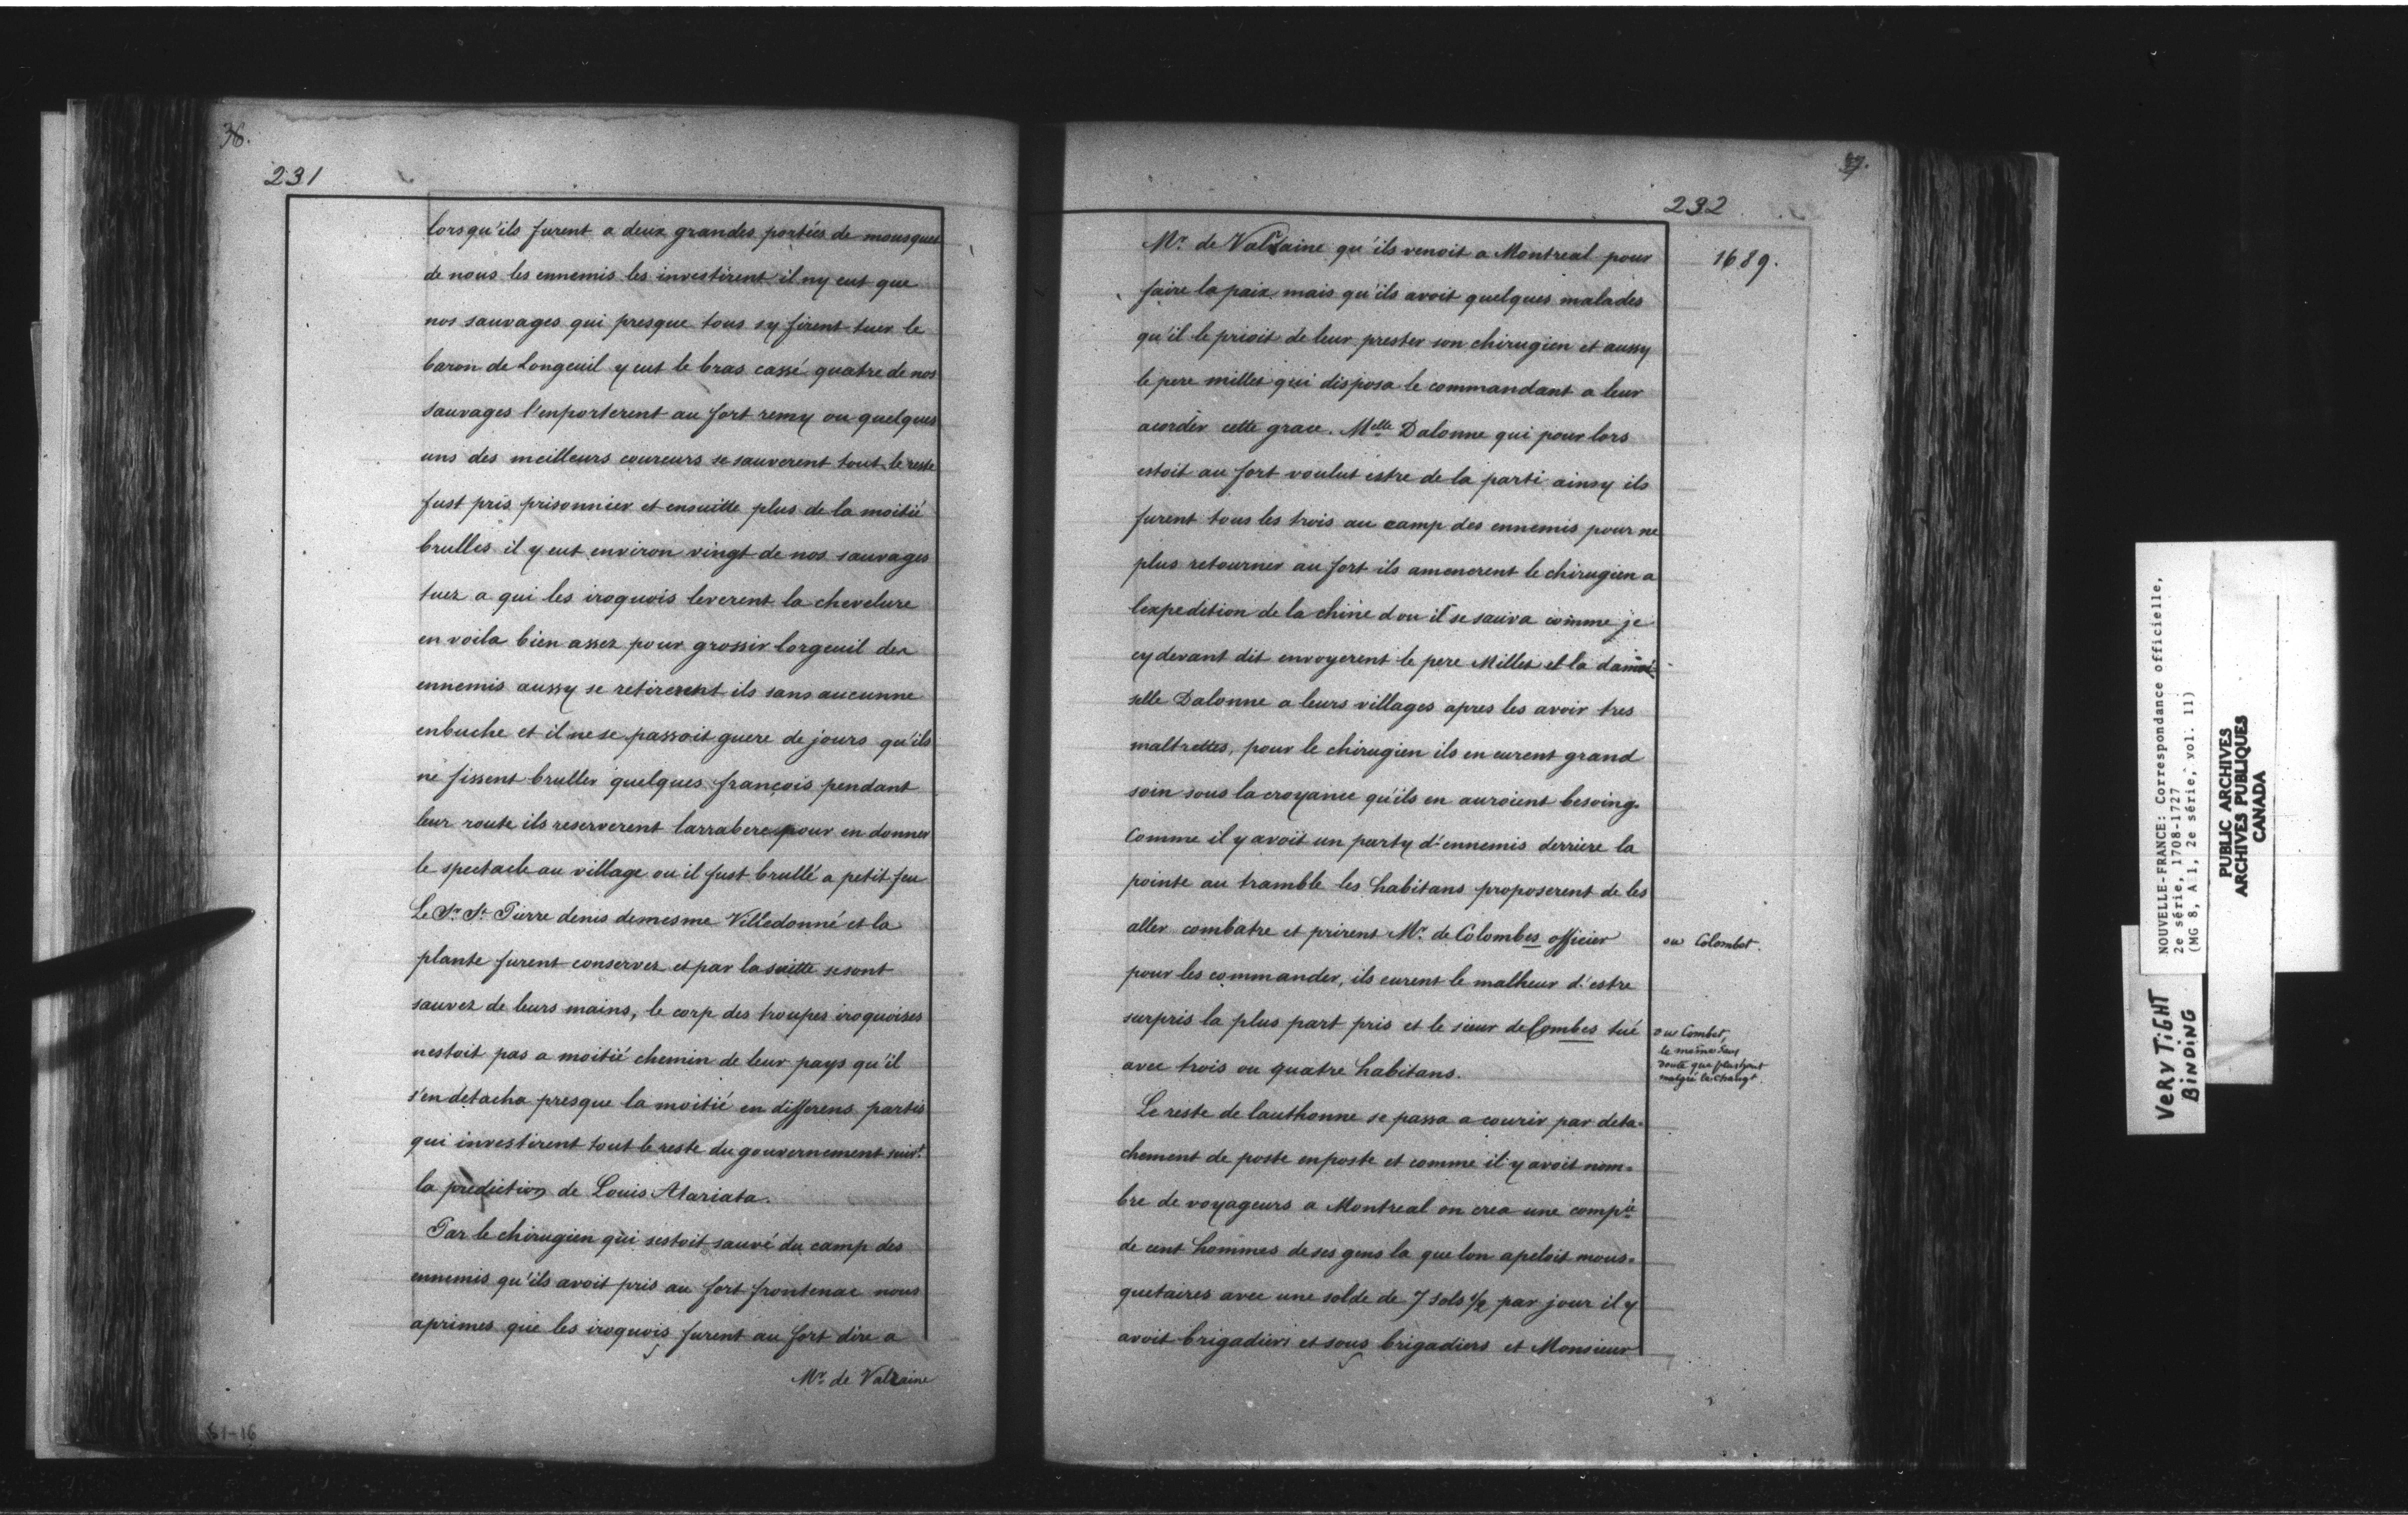 36.
231
lorsqu'ils furent a deux grandes portées de mousquet
de nous les ennemis les investirent il ny eut que
nos sauvages qui presque tous sy firent tuer le
baron de Longeuil y eut le bras cassé quatre de nos
sauvages l'enporterent au fort remy ou quelques
uns des meilleurs coureurs se sauverent tout le reste
fust pris prisonnier et ensuitte plus de la moitié
brulles il y eut environ vingt de nos sauvages
tuez a qui les iroquois leverent la chevelure
en voila bien assez pour grossir lorgeuil des
ennemis aussy se retirerent ils sans aucunne
enbuche et il ne se passoit guere de jours qu'ils
ne fissent bruller quelques françois pendant
leur route ils reserverent larrabere pour en donner
le spectacle au village ou il fust brullé a petit feu
Le Sr. St. Pierre denis demesme Villedonné et la
plante furent conservez et par la suitte se sont
sauvez de leurs mains, le corp des troupes iroquoises
nestoit pas a moitié chemin de leur pays qu'il
s'en detacha presque la moitié en differens partis
qui investirent tout le reste du gouvernement suivt.
la prediction de Louis Atariata.
Par le chirugien qui sestoit sauvé du camp des
ennemis qu'ils avoit pris au fort frontenac nous
aprimes que les iroquois furent au fort dire a
Mr. de Valraine
37.
232
1689.
Mr. de Valraine qu'ils venoit a Montreal pour
faire la paix mais qu'ils avoit quelques malades
qu'il le prioit de leur prester son chirugien et aussy
le pere millet qui disposa le commandant a leur
acorder cette grace. Melle Dalonne qui pour lors
estoit au fort voulut estre de la parti ainsy ils
furent tous les trois au camp des ennemis pour ne
plus retourner au fort ils amenerent le chirugien a
lexpedition de la chine dou il se sauva comme je
cy devant dit envoyerent le pere Millet et la damoi-
selle Dalonne a leurs villages apres les avoir tres
maltrettes, pour le chirugien ils en eurent grand
soin sous la croyance qu'ils en auroient besoing.
Comme il y avoit un party d'ennemis derriere la
pointe au tramble les habitans proposerent de les
aller combatre et prirent Mr. de Colombes officier
ou Colombet.
pour les commander, ils eurent le malheur d'estre
surpris la plus part pris et le sieur de Combes tué
ou Combet,
le même sans
doute que plus haut
malgré le changt.
avec trois ou quatre habitans.
Le reste de lauthonne se passa a courir par deta-
chement de poste en poste et comme il y avoit nom-
bre de voyageurs a Montreal on crea une compie
de cent hommes de ses gens la que lon apeloit mous-
quetaires avec une solde de 7 sols 1/2 par jour il y
avoit brigadiers et sous brigadiers et Monsieur
81-16
NOUVELLE-FRANCE: Correspondance officielle,
2e série, 1708-1727
(MG 8, A 1, 2e série, vol. 11)
PUBLIC ARCHIVES
ARCHIVES PUBLIQUES
CANADA
VERY TiGHT
BiNDiNG